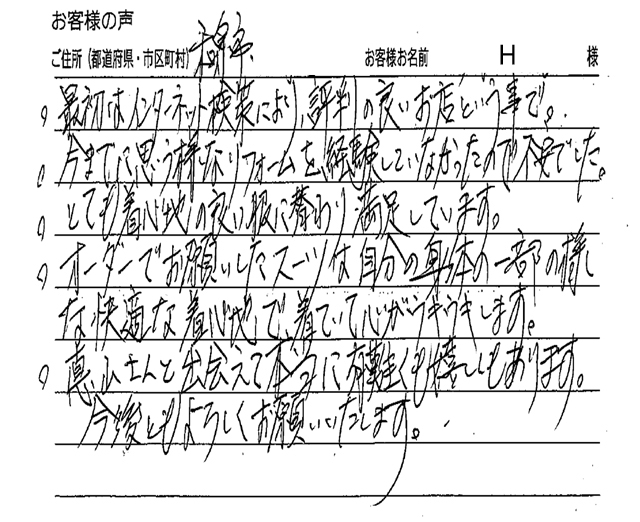 お客様の声
ご住所（都道府県・市区町村） お客様お名前 H 様
最初はインターネット検索により、評判の良いお店という事で。
今までに思う様なリフォームを経験していなかったので不安でした。
とても着心地の良い服に替わり満足しています。
オーダーでお願いしたスーツは自分の身体の一部の様
な快適な着心地で、着ていて心がうきうきします。
さんと出会えて本当に有難くも嬉しくもあります。
今後ともよろしくお願いいたします。